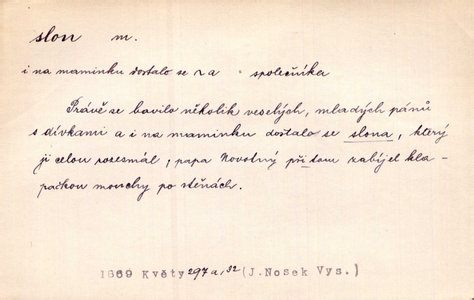 slon m.
i na maminku dostalo se za společníka
Právě se bavilo několik veselých, mladých pánů
s dívkami a i na maminku dostalo se slona, který
ji celou rozesmál, papa Novotný při tom zabíjel kla-
pačkou mouchy po stěnách.
1869 Květy 297 a, 32 (J. Nosek Vys.)